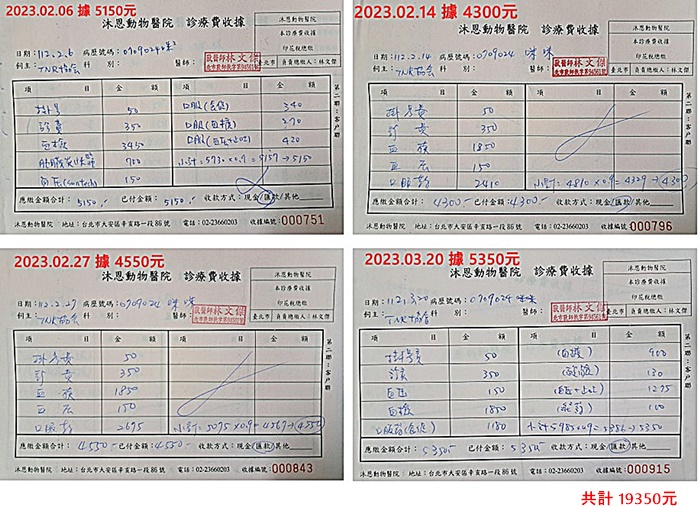 2023.02.06 據 5150元
沐恩動物醫院 診療費收據
沐恩動物醫院
本診療費收據
印花稅總繳
日期：112.2.6 病歷號碼：0909024
飼主：TNR協會 科別： 醫師：
獸醫師林文傑
臺北市 負責總繳人：林文傑
項目 金額 項目 金額
掛號 50 口服(食慾) 340
診費 350 口服(血檢) 270
血檢 3450 口服 420
700 小計：5730×0.9=5157→5150
血压 150
應繳金額合計：5150.- 已付金額：5150.- 收款方式：現金/匯款/其他
沐恩動物醫院 地址：台北市大安區辛亥路一段86號 電話：02-23660203 收據編號：000751
2023.02.14 據 4300元
沐恩動物醫院 診療費收據
沐恩動物醫院
本診療費收據
印花稅總繳
日期：112.2.14 病歷號碼：0909024 咪咪
飼主：TNR協會 科別： 醫師：
獸醫師林文傑
臺北市 負責總繳人：林文傑
項目 金額 項目 金額
掛号費 50
診費 350
血檢 1850
血压 150
口服藥 2410 小計：4810×0.9=4329→4300
應繳金額合計：4300.- 已付金額：4300.- 收款方式：現金/匯款/其他
沐恩動物醫院 地址：台北市大安區辛亥路一段86號 電話：02-23660203 收據編號：000796
2023.02.27 據 4550元
沐恩動物醫院 診療費收據
沐恩動物醫院
本診療費收據
印花稅總繳
日期：112.2.27 病歷號碼：0909024 咪咪
飼主：TNR協會 科別： 醫師：
獸醫師林文傑
臺北市 負責總繳人：林文傑
項目 金額 項目 金額
掛号費 50
診費 350
血檢 1850
血压 150
口服藥 2695 小計：5095×0.9=4567→4550
應繳金額合計：4550.- 已付金額：4550.- 收款方式：現金/匯款/其他
沐恩動物醫院 地址：台北市大安區辛亥路一段86號 電話：02-23660203 收據編號：000843
2023.03.20 據 5350元
沐恩動物醫院 診療費收據
沐恩動物醫院
本診療費收據
印花稅總繳
日期：112.3.20 病歷號碼：0909024 咪咪
飼主：TNR協會 科別： 醫師：
獸醫師林文傑
臺北市 負責總繳人：林文傑
項目 金額 項目 金額
掛號費 50 (血檢) 900
診費 350 130
血压 150 1275
血檢 1850 100
口服藥(食慾) 1180 小計5985×0.9=5386→5350
應繳金額合計：5350.- 已付金額：5350.- 收款方式：現金/匯款/其他
沐恩動物醫院 地址：台北市大安區辛亥路一段86號 電話：02-23660203 收據編號：000915
共計 19350元